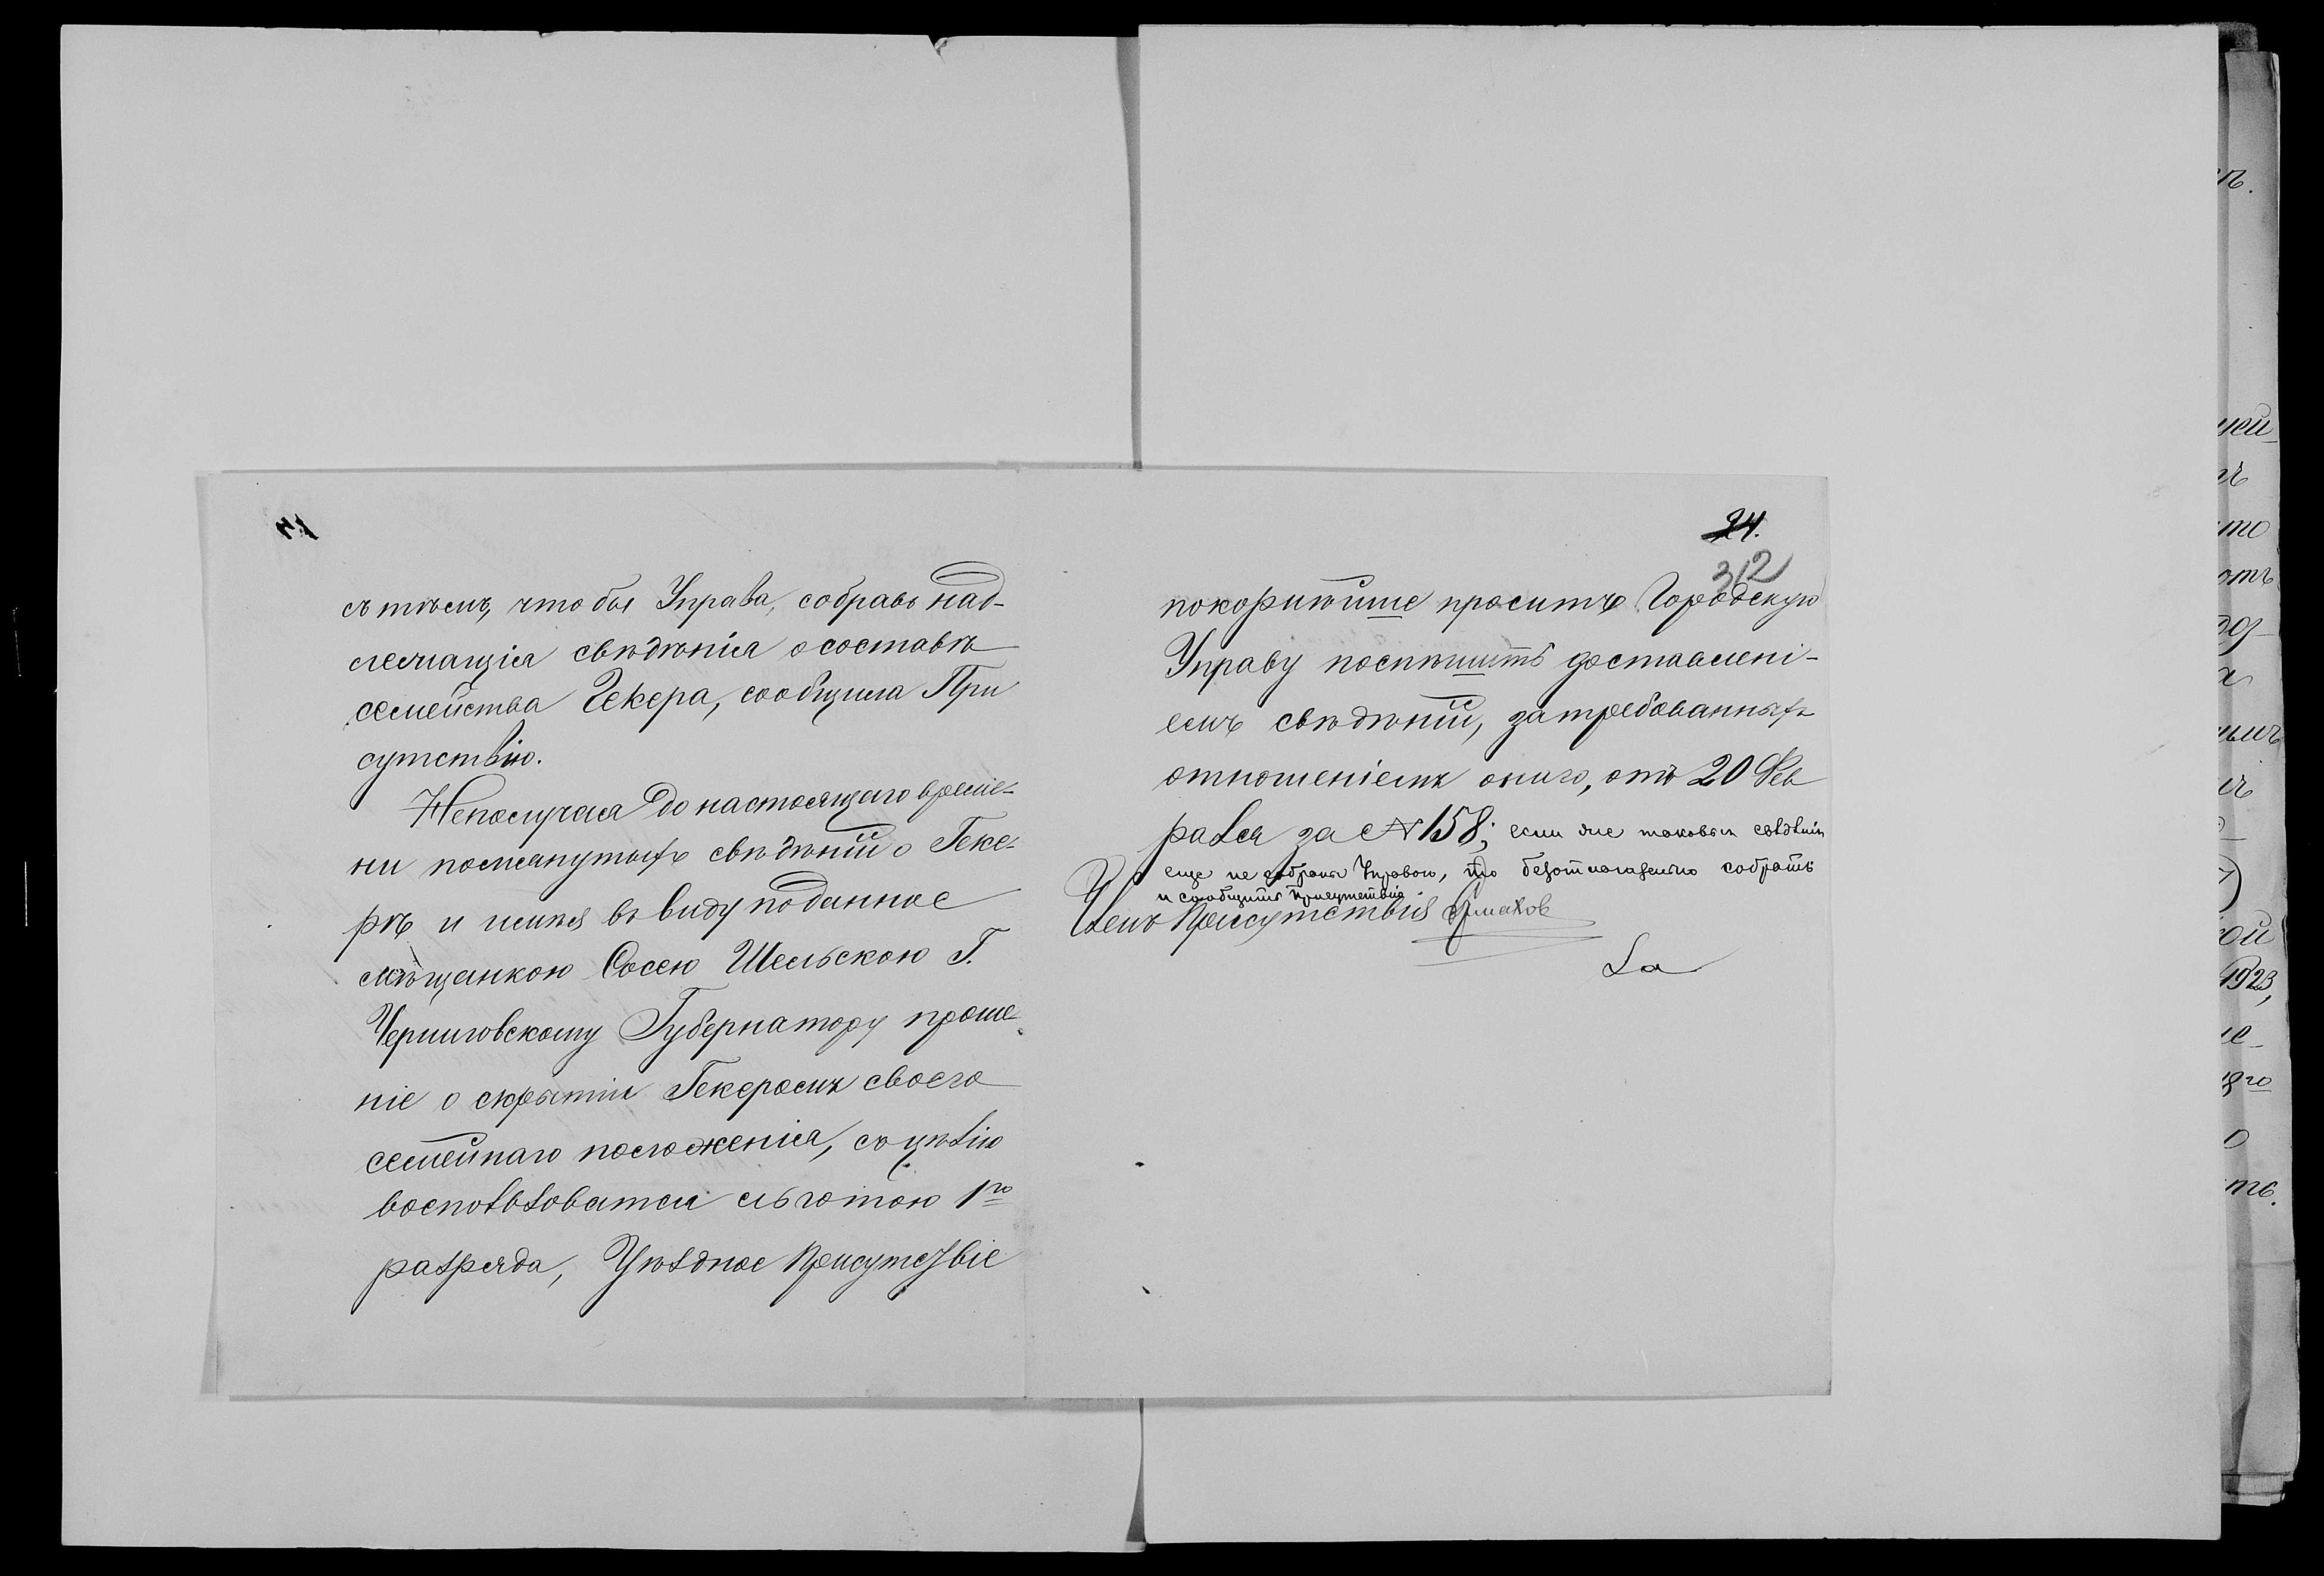 съ тѣмъ, что бы Управа, собравъ над-
лежащія свѣдѣнія о составѣ
семейства Гекера, сообщила При
сутствію.
Неполучая до настоящаго време-
ни помянутыхъ свѣдѣній о Геке-
рѣ и имѣя въ виду поданное
мѣщанкою Сосею Шельскою Г.
Черниговскому Губернатору проше-
ніе о скрытіи Гекеромъ своего
семейнаго положенія, съ цѣлію
воспользоватся льготою 1го
разряда, Уѣздное Присутствіе
24.
312
покорнѣйше проситъ Городскую
Управу поспѣшить доставлені-
емъ свѣдѣній, затребованныхъ
отношеніемъ онаго, отъ 20 Фев
раля за № 158; если же таковыя свѣдѣнія
еще не собраны Управою, то безотлагательно собрать
и сообщить Присутствію
Членъ Присутствія Ермаков
пъ.
ней
то
отъ
а
1923,
8го